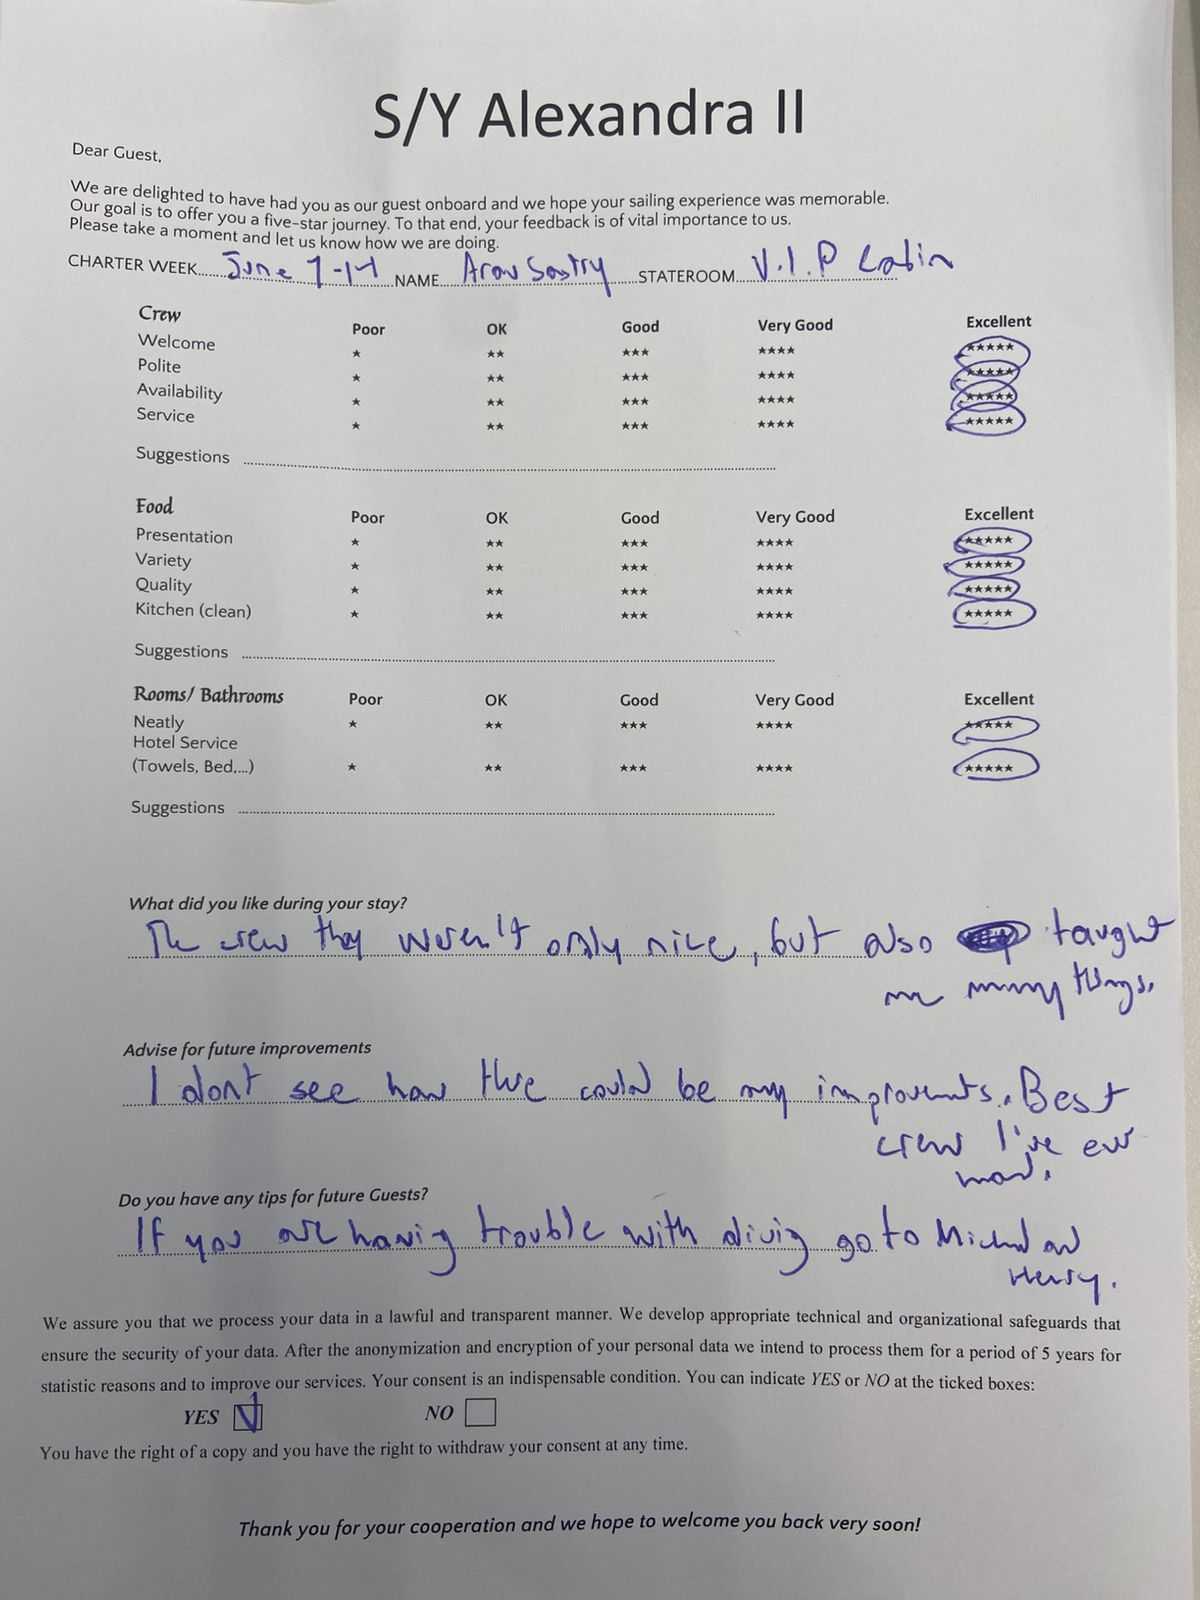 S/Y Alexandra II
Dear Guest,
We are delighted to have had you as our guest onboard and we hope your sailing experience was memorable.
Our goal is to offer you a five-star journey. To that end, your feedback is of vital importance to us.
Please take a moment and let us know how we are doing.
CHARTER WEEK June 7-14 NAME Arav Sastry STATEROOM V.I.P Cabin
Crew Poor OK Good Very Good Excellent
Welcome ★ ★★ ★★★ ★★★★ ★★★★★
Polite ★ ★★ ★★★ ★★★★ ★★★★★
Availability ★ ★★ ★★★ ★★★★ ★★★★★
Service ★ ★★ ★★★ ★★★★ ★★★★★
Suggestions
Food Poor OK Good Very Good Excellent
Presentation ★ ★★ ★★★ ★★★★ ★★★★★
Variety ★ ★★ ★★★ ★★★★ ★★★★★
Quality ★ ★★ ★★★ ★★★★ ★★★★★
Kitchen (clean) ★ ★★ ★★★ ★★★★ ★★★★★
Suggestions
Rooms/ Bathrooms Poor OK Good Very Good Excellent
Neatly ★ ★★ ★★★ ★★★★ ★★★★★
Hotel Service
(Towels, Bed,...) ★ ★★ ★★★ ★★★★ ★★★★★
Suggestions
What did you like during your stay?
The crew they weren't only nice, but also taught
me many things.
Advise for future improvements
I dont see how there could be any improvents. Best
crew I've ever
Do you have any tips for future Guests?
If you are having trouble with diving go to Michael and
Henry.
We assure you that we process your data in a lawful and transparent manner. We develop appropriate technical and organizational safeguards that
ensure the security of your data. After the anonymization and encryption of your personal data we intend to process them for a period of 5 years for
statistic reasons and to improve our services. Your consent is an indispensable condition. You can indicate YES or NO at the ticked boxes:
YES NO
You have the right of a copy and you have the right to withdraw your consent at any time.
Thank you for your cooperation and we hope to welcome you back very soon!